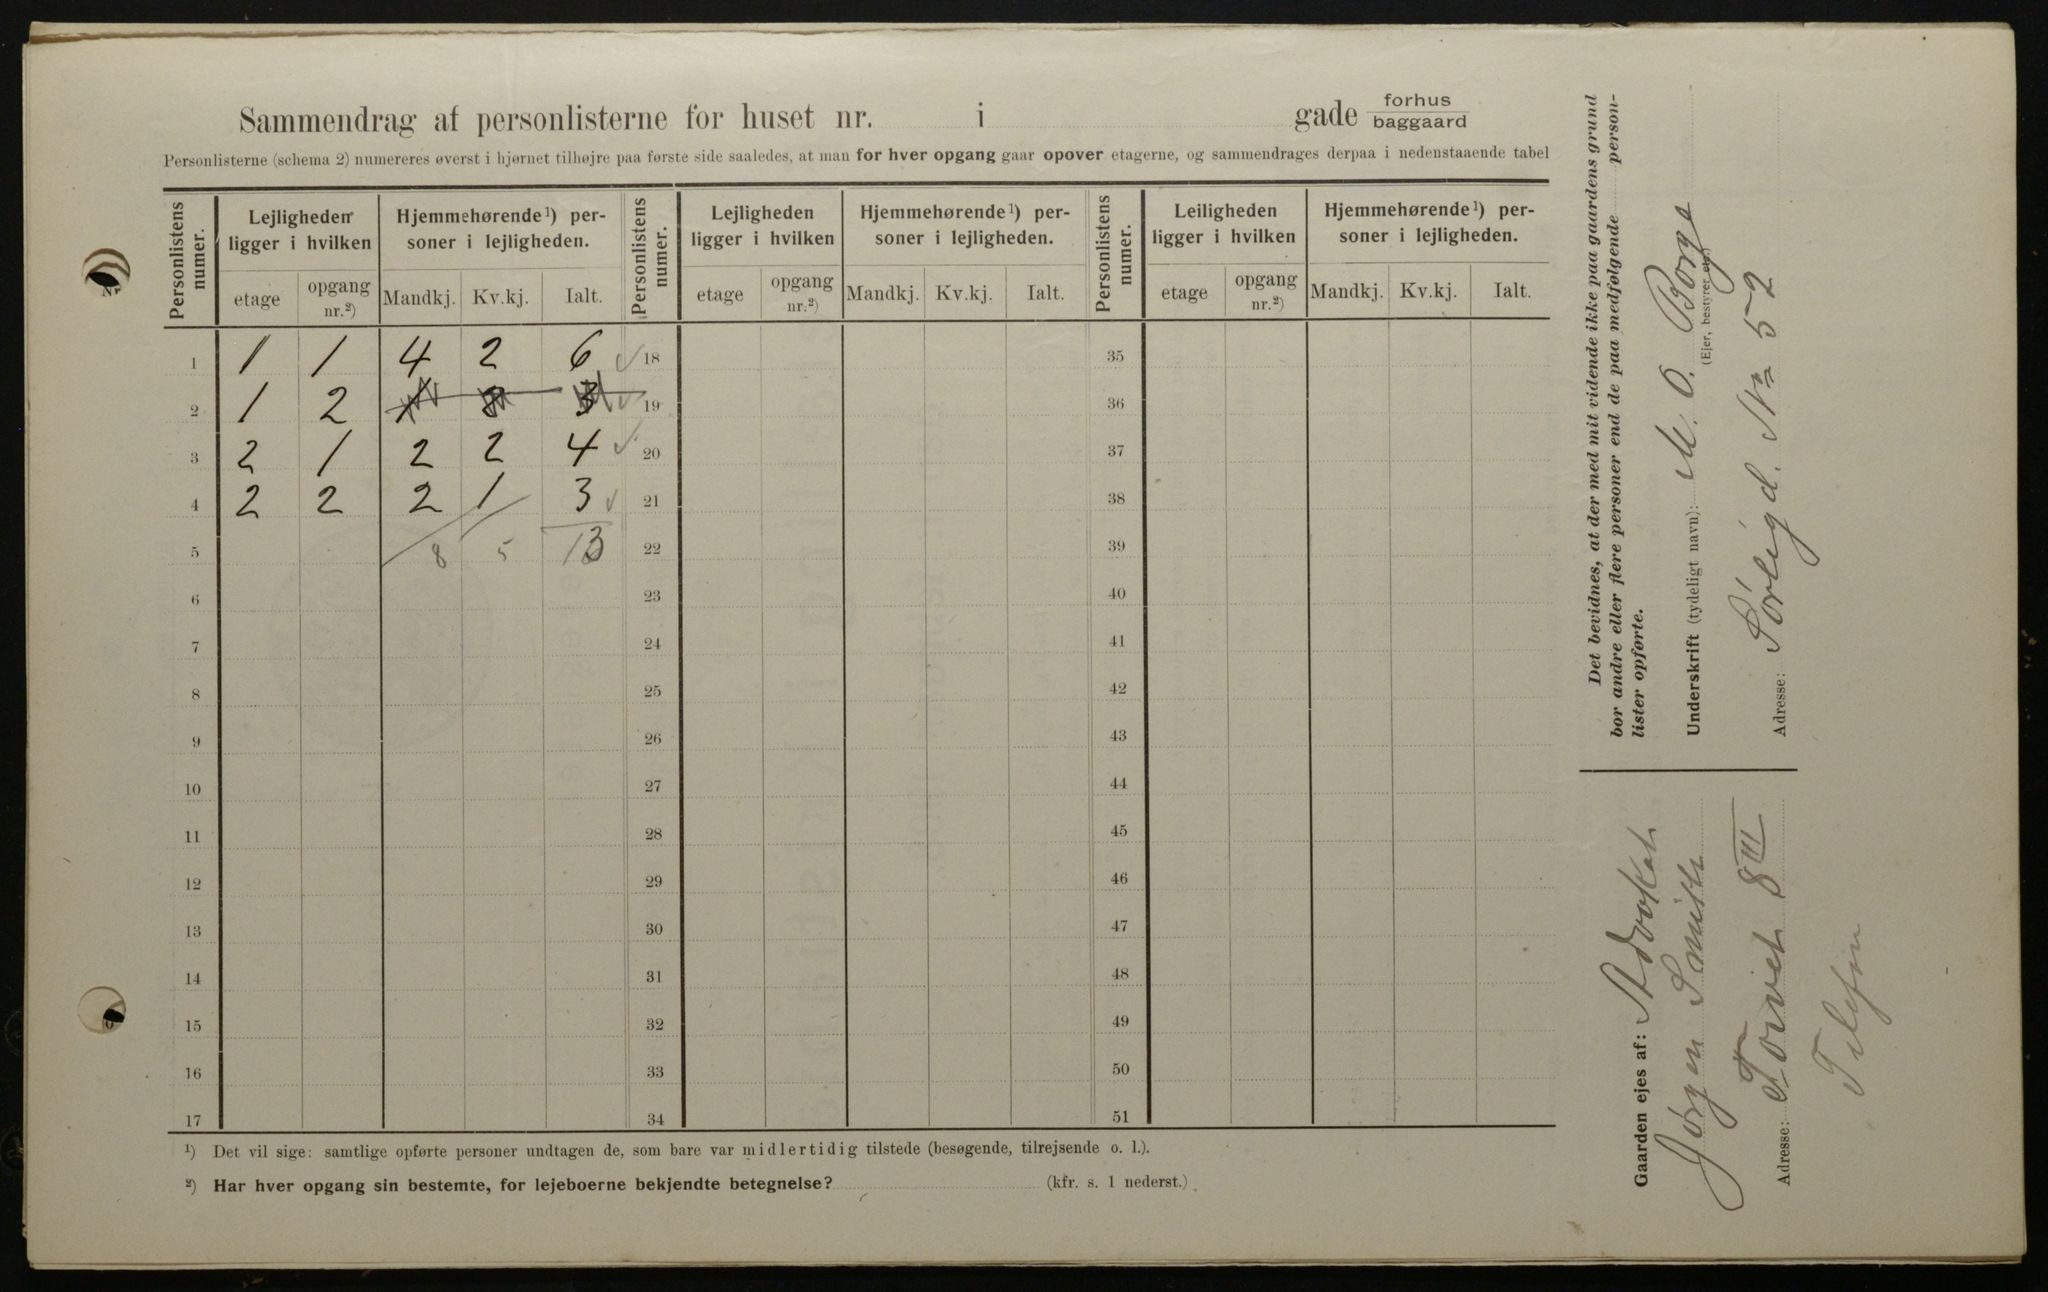 Sammendrag af personlisterne for huset nr. i gade forhus baggaard
Personlisterne (schema 2) numereres øverst i hjørnet tilhøjre paa første side saaledes, at man for hver opgang gaar opover etagerne, og sammendrages derpaa i nedenstaaende tabel
Personlistens numer.
Lejligheden ligger i hvilken
Hjemmehørende ¹) personer i lejligheden.
Personlistens numer.
Lejligheden ligger i hvilken
Hjemmehørende ¹) personer i lejligheden.
Personlistens numer.
Leiligheden ligger i hvilken
Hjemmehørende ¹) personer i lejligheden.
etage opgang nr.²) Mandkj. Kv.kj. Ialt.
etage opgang nr.²) Mandkj. Kv.kj. Ialt.
etage opgang nr.²) Mandkj. Kv.kj. Ialt.
1 1 1 4 2 6 18 35
2 1 2 19 36
3 2 1 2 2 4 20 37
4 2 2 2 1 3 21 38
5 8 5 13 22 39
6 23 40
7 24 41
8 25 42
9 26 43
10 27 44
11 28 45
12 29 46
13 30 47
14 31 48
15 32 49
16 33 50
17 34 51
¹) Det vil sige: samtlige opførte personer undtagen de, som bare var midlertidig tilstede (besøgende, tilrejsende o. l.).
²) Har hver opgang sin bestemte, for lejeboerne bekjendte betegnelse? (kfr. s. 1 nederst.)
Det bevidnes, at der med mit vidende ikke paa gaardens grund
bor andre eller flere personer end de paa medfølgende person-
lister opførte.
Underskrift (tydeligt navn): M. O. Borge
(Ejer, bestyrer etc.)
Adresse: Sørligd. No 52
Gaarden ejes af: Advokat
Jørgen Smith
Adresse: Torvet 8 III
Telefon